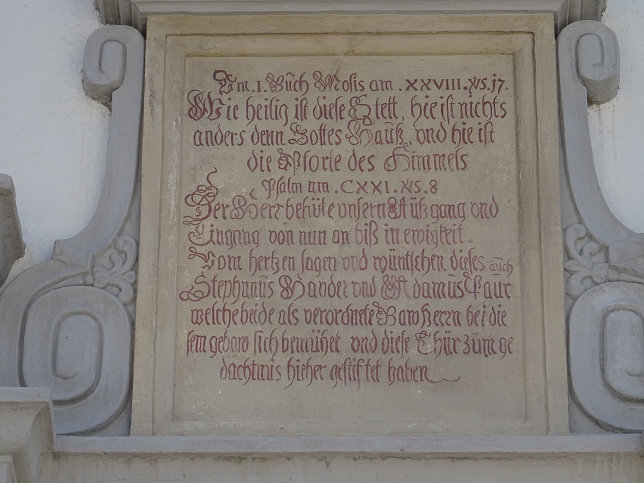 Im .I. Buch Mosis am .XXVIII. vs. 17.
Wie heilig ist diese Stett, hie ist nichts
anders denn Gottes Hauß, vnd hie ist
die Pforte des Himmels
Psalm am .CXXI. vs. 8
Der Herr behüte vnsern Außgang vnd
Eingang von nun an biß in ewigkeit.
Vom hertzen sagen vnd wüntschen dieses auch
Stephanüs Xander vnd Adamüs Paur
welche beide als verordnete Baw Herrn bei die
sem gebaw sich bemühet vnd diese Thür züm ge
dachtnis hieher gestiftet haben